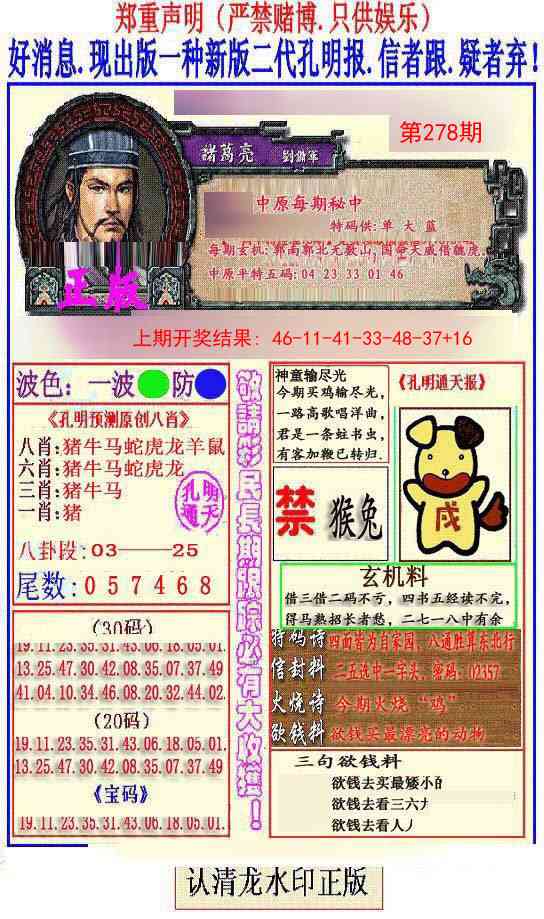 郑重声明（严禁赌博.只供娱乐）
好消息.现出版一种新版二代孔明报.信者跟.疑者弃!
第278期
諸葛亮 劉備軍
中原每期秘中
特码供:单 大 蓝
每期玄机:郭南郭北无数山,国舍天威借魏虎.
中原平特五码:04 23 33 01 46
正版
上期开奖结果: 46-11-41-33-48-37+16
波色: 一波 防
《孔明预测原创八肖》
八肖:猪牛马蛇虎龙羊鼠
六肖:猪牛马蛇虎龙
三肖:猪牛马
一肖:猪
孔明
通天
八卦段:03——25
尾数:057468
(30码)
19.11.23.35.31.43.06.18.05.01.
13.25.47.30.42.08.35.07.37.49
41.04.10.34.46.08.20.32.44.02.
(20码)
19.11.23.35.31.43.06.18.05.01.
13.25.47.30.42.08.35.07.37.49
《宝码》
19.11.23.35.31.43.06.18.05.01.
敬請彩民長期跟踪必有大收獲!
神童输尽光
今期买鸡输尽光,
一路高歌唱洋曲,
君是一条蛀书虫,
有客加鞭已转归.
《孔明通天报》
禁 猴兔
戌
玄机料
借三借二码不亏,四书五经读不完,
得马熟招长者愁,二七一八中有余
特码诗 四面皆为自家国，八通胜算东北行
信封料 二五选中一字头.密码:02357
火烧诗 今期火烧“鸡”
欲钱料 欲钱买最漂亮的动物
三句欲钱料
欲钱去买最矮小的
欲钱去看三六
欲钱去看人
认清龙水印正版